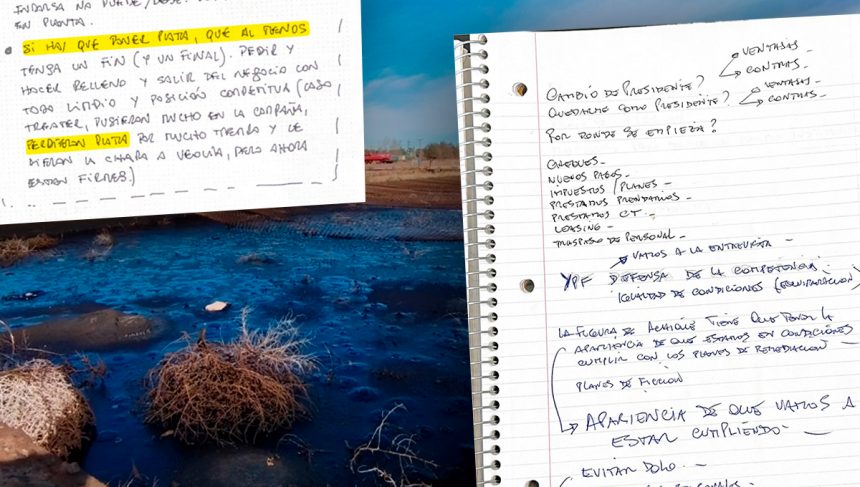 ENDORSA NO PUEDE/DEBE
EN PLANTA.
SI HAY QUE PONER PLATA, QUE AL MENOS
TENGA UN FIN (Y UN FINAL). PEDIR Y
HACER RELLENO Y SALIR DEL NEGOCIO CON
TODO LIMPIO Y POSICIÓN COMPETITIVA (CASO
TREATER, PUSIERON MUCHO EN LA CAMPAÑA,
PERDIERON PLATA POR MUCHO TIEMPO Y LE
DIERON LA CHAPA A VEOLIA, PERO AHORA
ESTAN FIRMES.)
CAMBIO DE PRESIDENTE? VENTAJAS -
CONTRAS -
QUEDARME COMO PRESIDENTE? VENTAJAS -
CONTRAS -
POR DONDE SE EMPIEZA?
CHEQUES -
NUEVOS PAGOS -
IMPUESTOS / PLANES -
PRESTAMOS PRENDARIOS -
PRESTAMOS CT -
LEASING -
TRASPASO DE PERSONAL -
VAMOS A LA ENTREVISTA -
YPF DEFENSA DE LA COMPETENCIA -
IGUALDAD DE CONDICIONES (EQUIPARACION)
LA FIGURA DE TIENE QUE TENER LA
APARIENCIA DE QUE ESTAMOS EN CONDICIONES
CUMPLIR CON LOS PLANES DE REMEDIACION -
PLANES DE FICCION
APARIENCIA DE QUE VAMOS A
ESTAR CUMPLIENDO -
EVITAR DOLO -